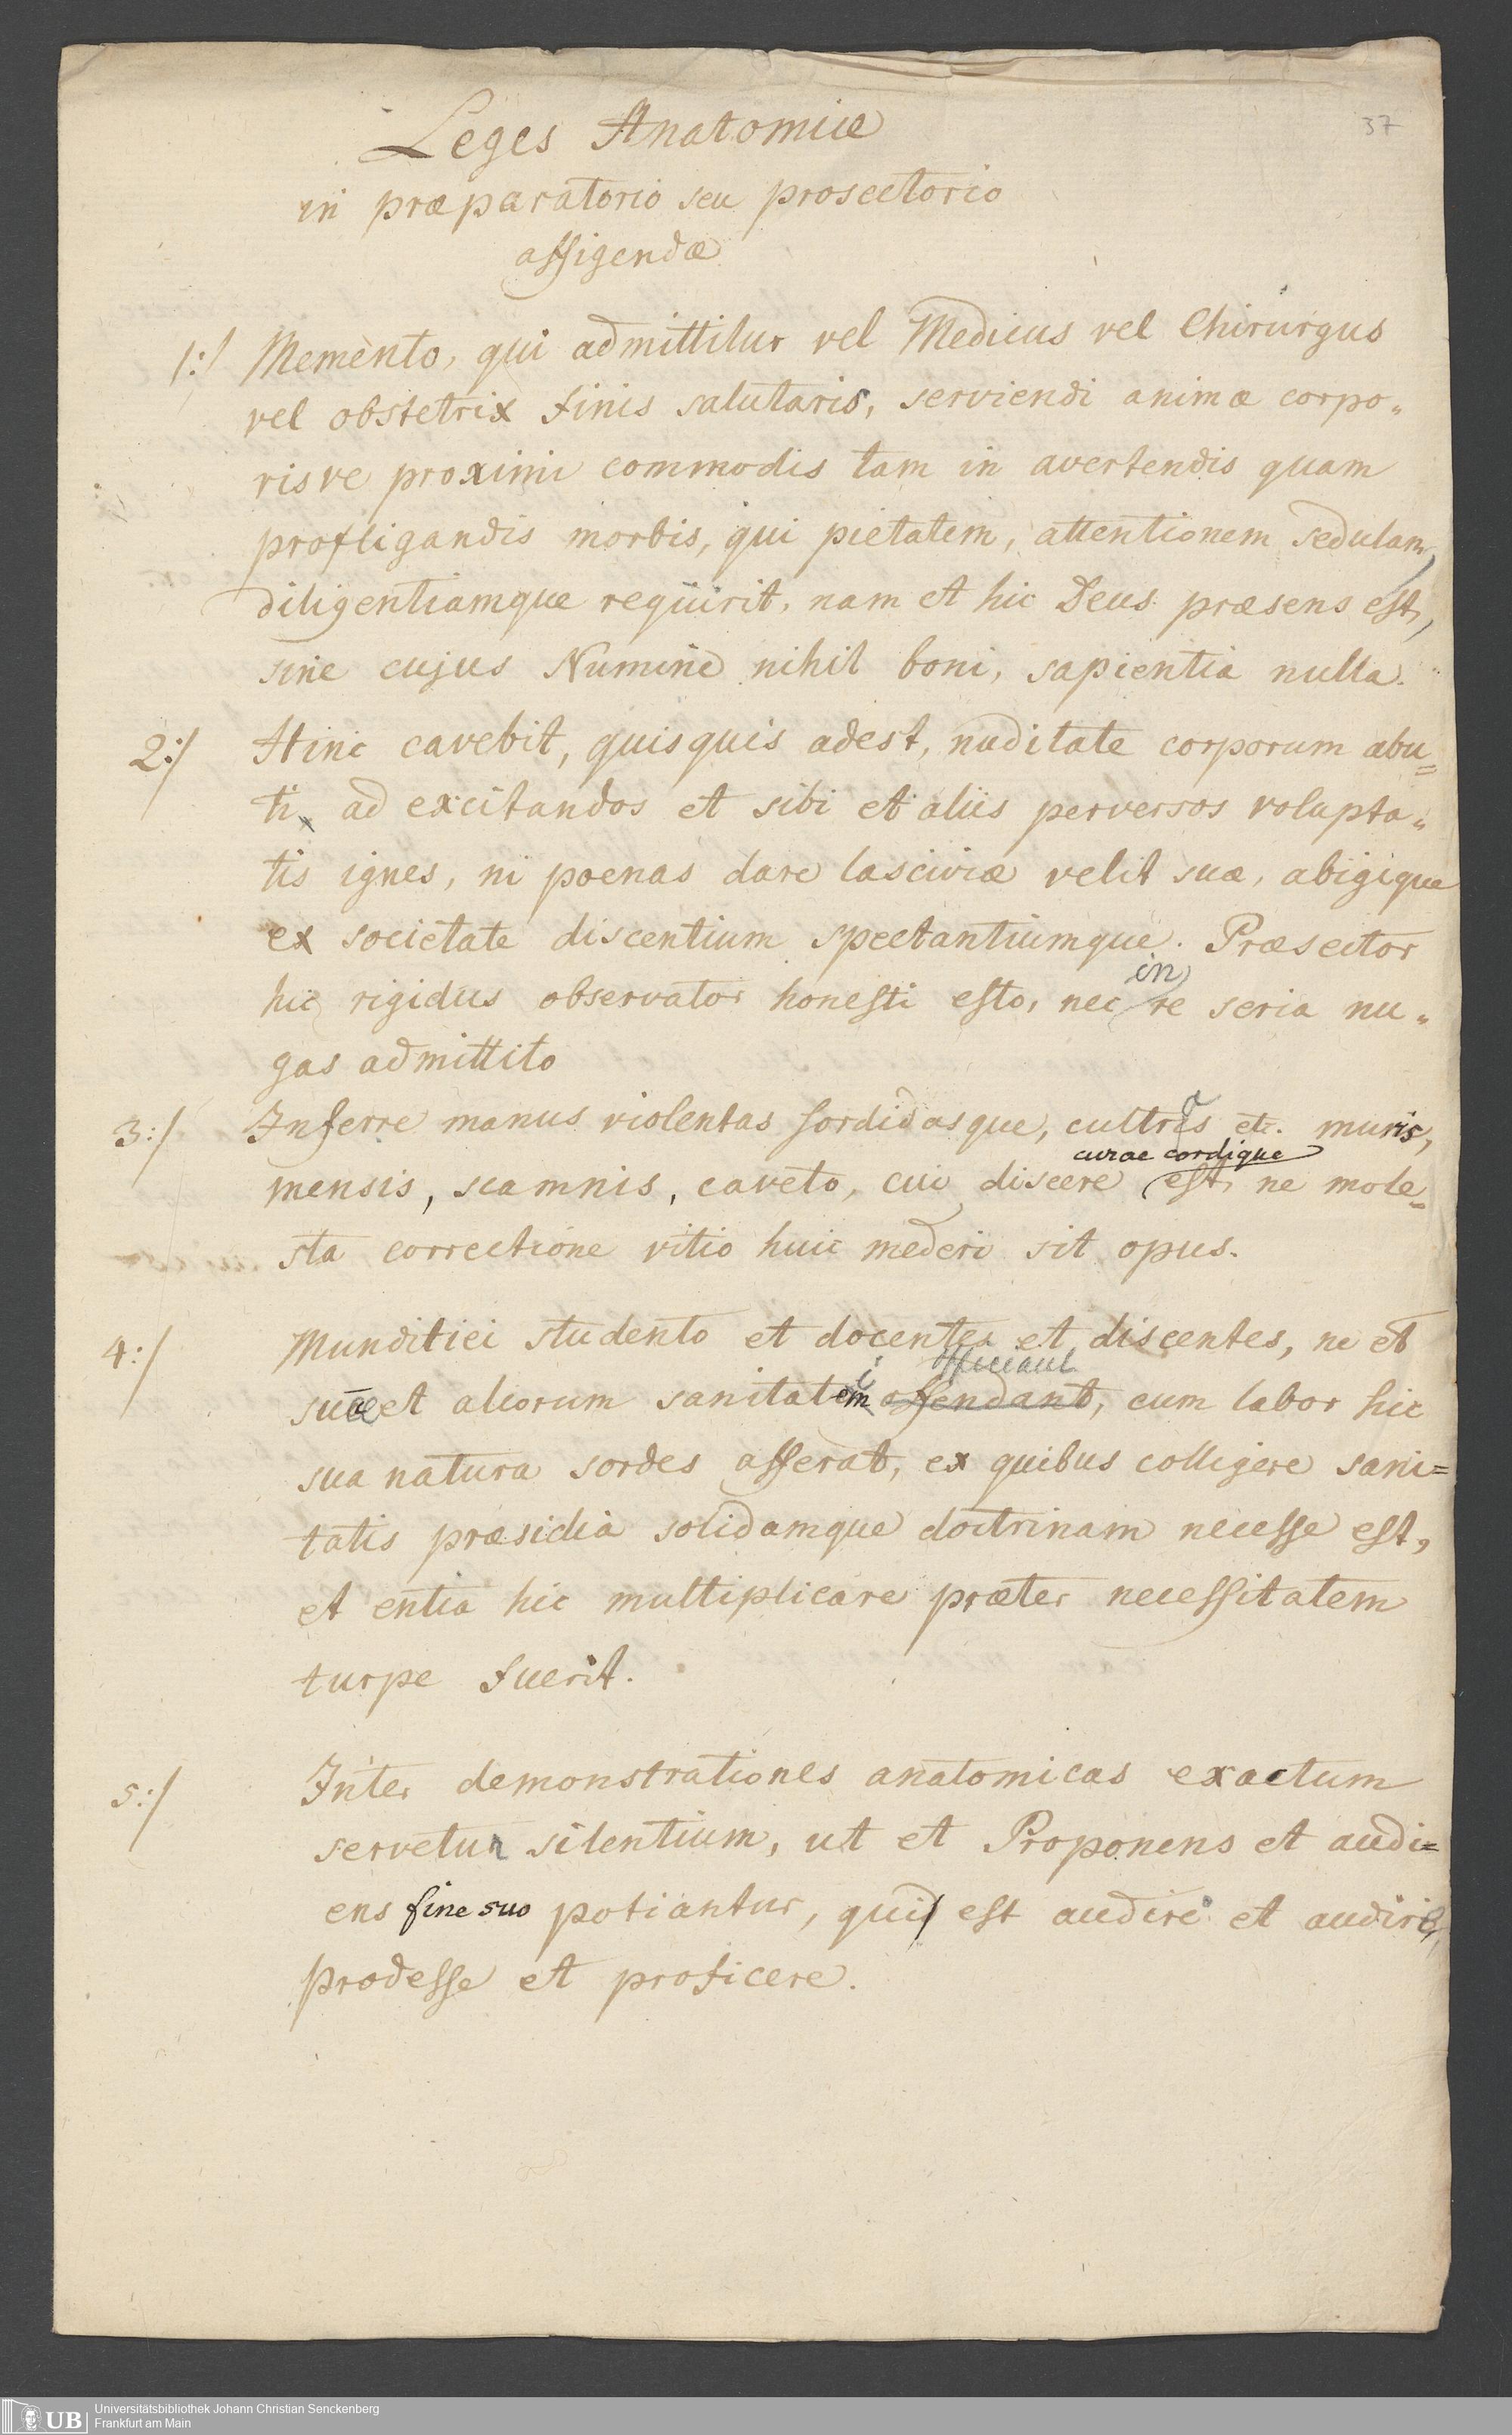 37
Leges Anatomiæ
in præparatorio seu prosectorio
affigendæ
1:/ Memento, qui admittitur vel Medicus vel Chirurgus
vel obstetrix finis salutaris, serviendi animæ corpo„
risve proximi commodis tam in avertendis quam
profligandis morbis, qui pietatem, attentionem sedulam,
diligentiamque requirit, nam et hic Deus præsens est,
sine cujus Numine nihil boni, sapientia nulla.
2:/ Hinc cavebit, quisquis adest, nuditate corporum abu=
ti ad excitandos et sibi et aliis perversos volupta„
tis ignes, ni poenas dare lasciviæ velit suæ, abigique
ex societate discentium spectantiumque. Præsector
in
hic rigidus observator honesti esto, nec re seria nu„
gas admittito
3:/ Inferre manus violentas sordidasque, cultris etc. muris,
curae cordique
mensis, scamnis, caveto, cui discere est, ne mole=
sta correctione vitio huic mederi sit opus.
4:/ Munditiei studento et docentes et discentes, ne et
i officiant
suæ et aliorum sanitatem offendant, cum labor hic
sua natura sordes afferat, ex quibus colligere sani=
tatis præsidia solidamque doctrinam necesse est,
et entia hic multiplicare præter necessitatem
turpe fuerit.
5:/ Inter demonstrationes anatomicas exactum
servetur silentium, ut et Proponens et audi=
ens fine suo potiantur, qui est audire et audiri,
prodesse et proficere.
UB
Universitätsbibliothek Johann Christian Senckenberg
Frankfurt am Main